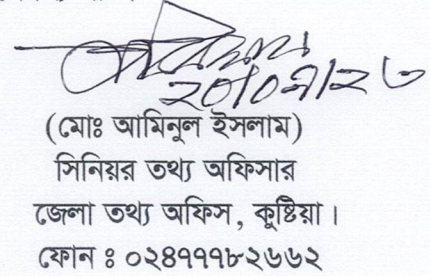 (মোঃ আমিনুল ইসলাম)
সিনিয়র তথ্য অফিসার
জেলা তথ্য অফিস, কুষ্টিয়া।
ফোন ঃ ০২৪৭৭৭৮২৬৬২